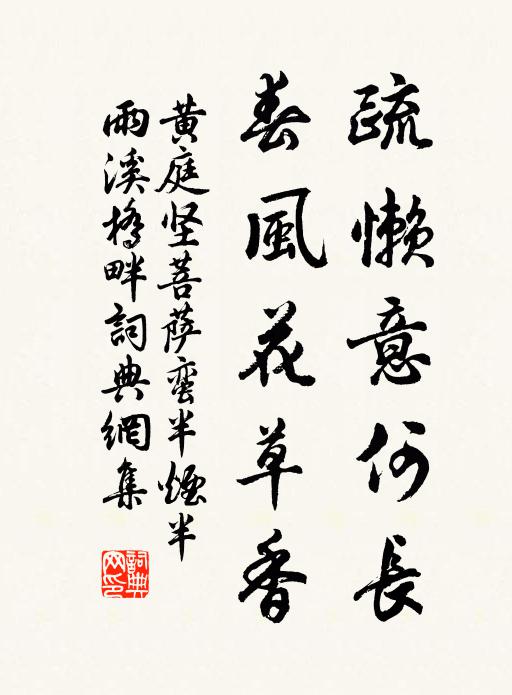 疏懶意何長
春風花草香
黄庭坚菩萨蛮半煙半
雨溪橋畔詞典網集
詞典
网印